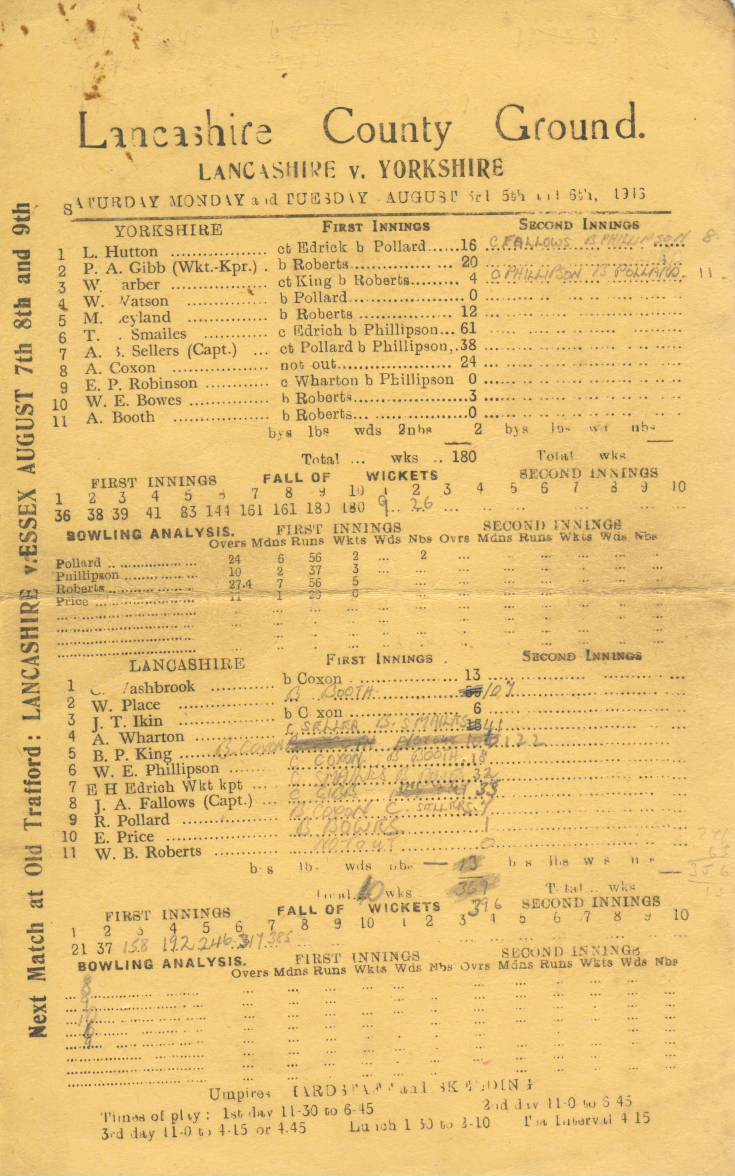 Lancashire County Ground.
LANCASHIRE v. YORKSHIRE
SATURDAY MONDAY and TUESDAY AUGUST 3rd 5th and 6th, 1946
Next Match at Old Trafford: LANCASHIRE v. ESSEX AUGUST 7th 8th and 9th
YORKSHIRE FIRST INNINGS SECOND INNINGS
1 L. Hutton ct Edrick b Pollard 16 C FALLOWS B PHILLIPSON 8
2 P. A. Gibb (Wkt.-Kpr.) b Roberts 20
3 W. arber ct King b Roberts 4 C PHILLIPSON B POLLARD 11
4 W. Watson b Pollard 0
5 M. eyland b Roberts 12
6 T. Smailes c Edrich b Phillipson 61
7 A. B. Sellers (Capt.) ct Pollard b Phillipson, 38
8 A. Coxon not out 24
9 E. P. Robinson c Wharton b Phillipson 0
10 W. E. Bowes b Roberts 3
11 A. Booth b Roberts 0
bys lbs wds 2nbs 2 bys lbs wd nbs
Total ... wks .. 180 Total wks
FIRST INNINGS FALL OF WICKETS SECOND INNINGS
1 2 3 4 5 6 7 8 9 10 1 2 3 4 5 6 7 8 9 10
36 38 39 41 83 144 161 161 180 180 9 26
BOWLING ANALYSIS. FIRST INNINGS SECOND INNINGS
Overs Mdns Runs Wkts Wds Nbs Ovrs Mdns Runs Wkts Wds Nbs
Pollard 24 6 56 2 2
Phillipson 10 2 37 3
Roberts 27.4 7 56 5
Price 11 1 29 0
LANCASHIRE FIRST INNINGS SECOND INNINGS
1 C. Washbrook b Coxon 13
2 W. Place B BOOTH 107
3 J. T. Ikin b C xon 6
4 A. Wharton C SELLER B SMAILES 41
5 B. P. King B. COXON 122
6 W. E. Phillipson C COXON B BOOTH 18
7 E H Edrich Wkt kpt 32
8 J. A. Fallows (Capt.) C GIBB 35
9 R. Pollard B COXON C SELLERS 7
10 E. Price B BOWES 1
11 W. B. Roberts NOT OUT 0
b s lb. wds nbs 13 b s lbs w s n s
Total 10 wks 369 Total wks
396
FIRST INNINGS FALL OF WICKETS SECOND INNINGS
1 2 3 4 5 6 7 8 9 10 1 2 3 4 5 6 7 8 9 10
21 37 158 192 246 317 385
BOWLING ANALYSIS. FIRST INNINGS SECOND INNINGS
Overs Mdns Runs Wkts Wds Nbs Ovrs Mdns Runs Wkts Wds Nbs
Umpires HARDSTAFF and SKELDING
Times of play: 1st day 11-30 to 6-45 2nd day 11-0 to 6-45
3rd day 11-0 to 4-15 or 4.45 Lunch 1 30 to 2-10 Tea Interval 4 15